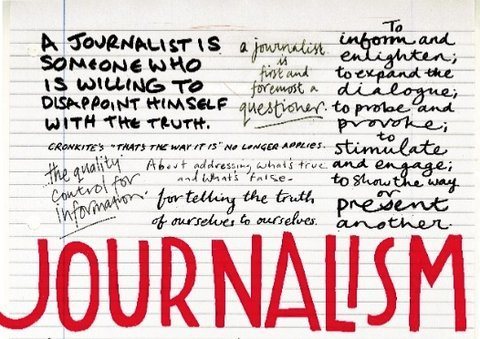 A JOURNALIST IS
SOMEONE WHO
IS WILLING TO
DISAPPOINT HIMSELF
WITH THE TRUTH.
a journalist
is
first and
foremost a
questioner.
To
inform and
enlighten;
to expand the
dialogue;
to probe and
provoke;
to
stimulate
and engage;
to show the way
or
present
another.
CRONKITE'S "THAT'S THE WAY IT IS" NO LONGER APPLIES.
the quality
control for
information.
About addressing what's true
and what's false.
for telling the truth
of ourselves to ourselves.
JOURNALISM